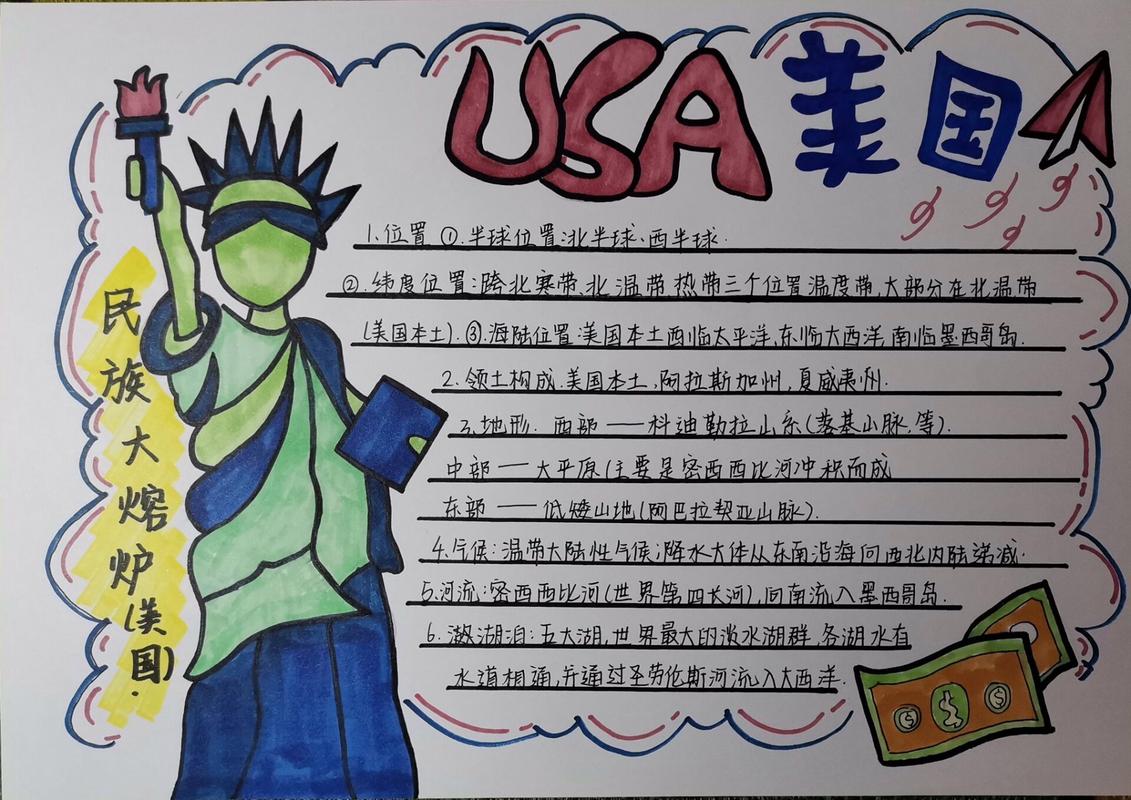 USA 美国
民族大熔炉(美国).
1.位置 ①.半球位置:北半球、西半球.
②.纬度位置:跨北寒带、北温带、热带三个位置温度带,大部分在北温带
(美国本土).③.海陆位置:美国本土西临太平洋,东临大西洋,南临墨西哥岛.
2.领土构成.美国本土,阿拉斯加州,夏威夷州.
3.地形. 西部——科迪勒拉山系(落基山脉,等).
中部——大平原(主要是密西西比河冲积而成
东部——低矮山地(阿巴拉契亚山脉).
4.气候:温带大陆性气候;降水大体从东南沿海向西北内陆递减.
5.河流:密西西比河(世界第四长河),向南流入墨西哥岛.
6.湖泊:五大湖,世界最大的淡水湖群,各湖水有
水道相通,并通过圣劳伦斯河流入大西洋.